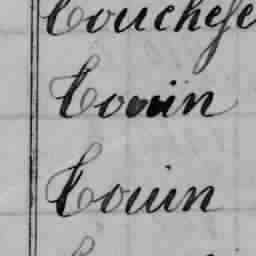 Couchese
Couin
Couin